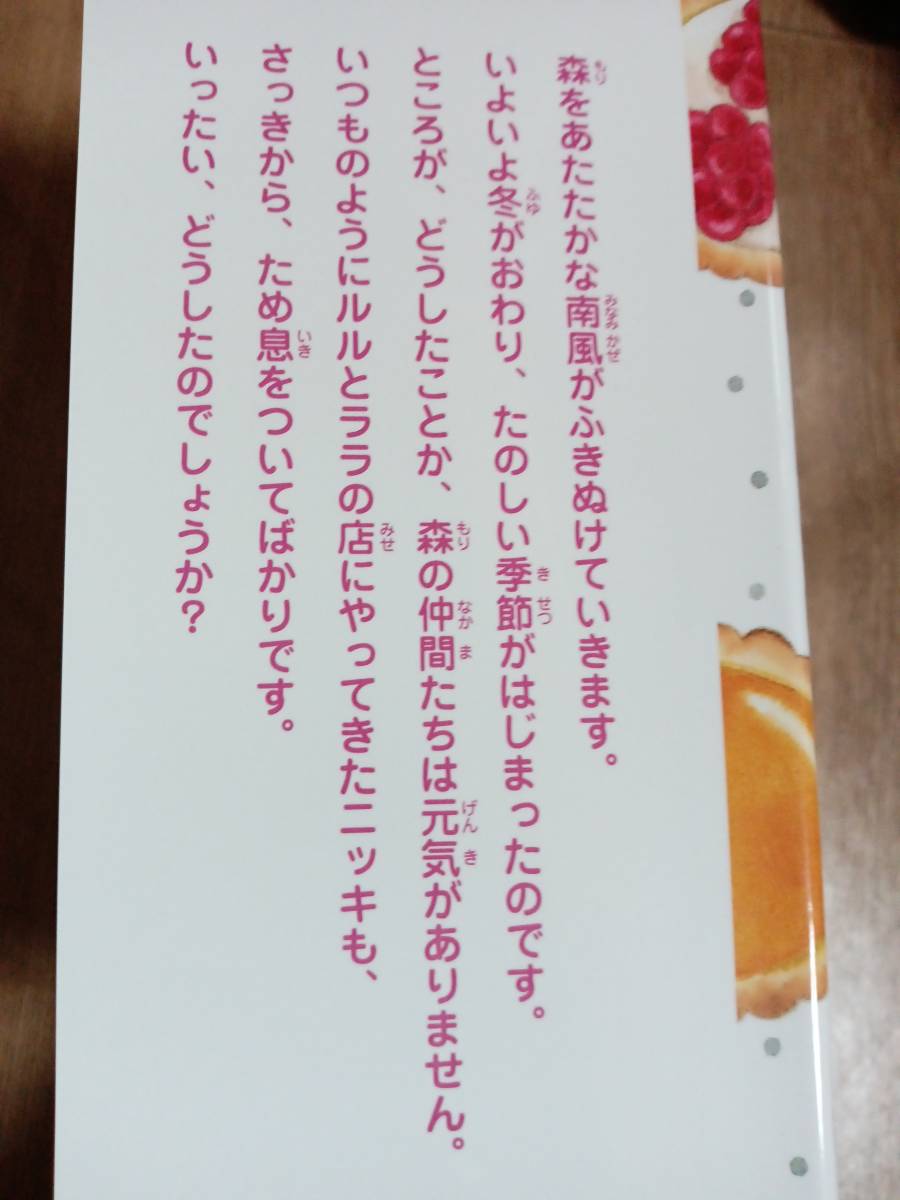 森をあたたかな南風がふきぬけていきます。
いよいよ冬がおわり、たのしい季節がはじまったのです。
ところが、どうしたことか、森の仲間たちは元気がありません。
いつものようにルルとララの店にやってきたニッキも、
さっきから、ため息をついてばかりです。
いったい、どうしたのでしょうか?